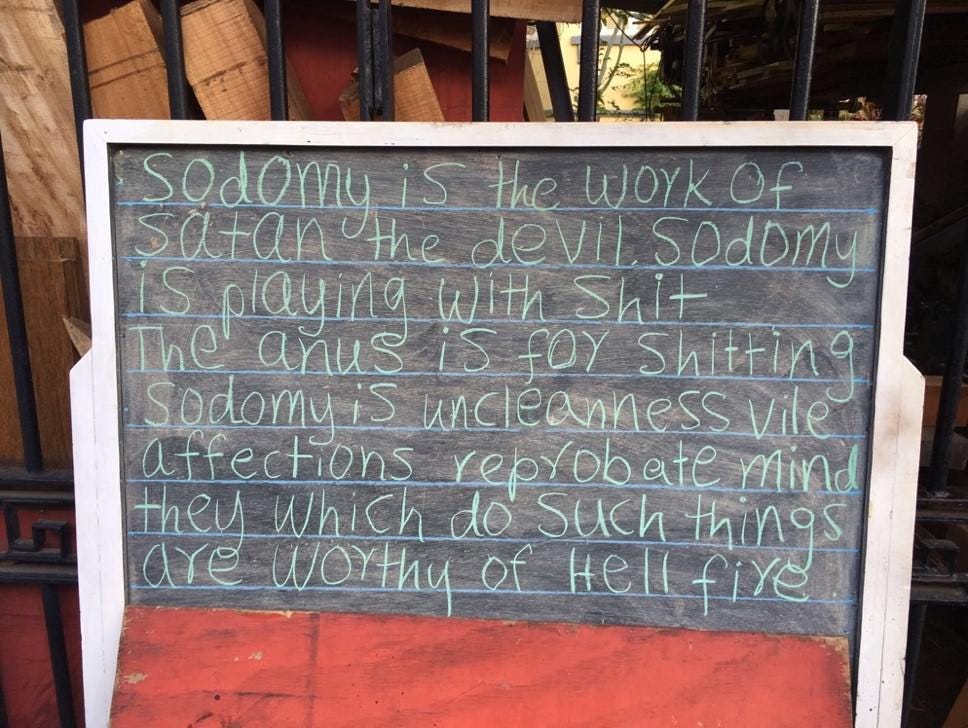 Sodomy is the work Of
Satan the devil. Sodomy
is playing with Shit
The anus is for Shitting
Sodomy is uncleanness vile
affections reprobate mind
they which do Such things
are worthy of Hell fire